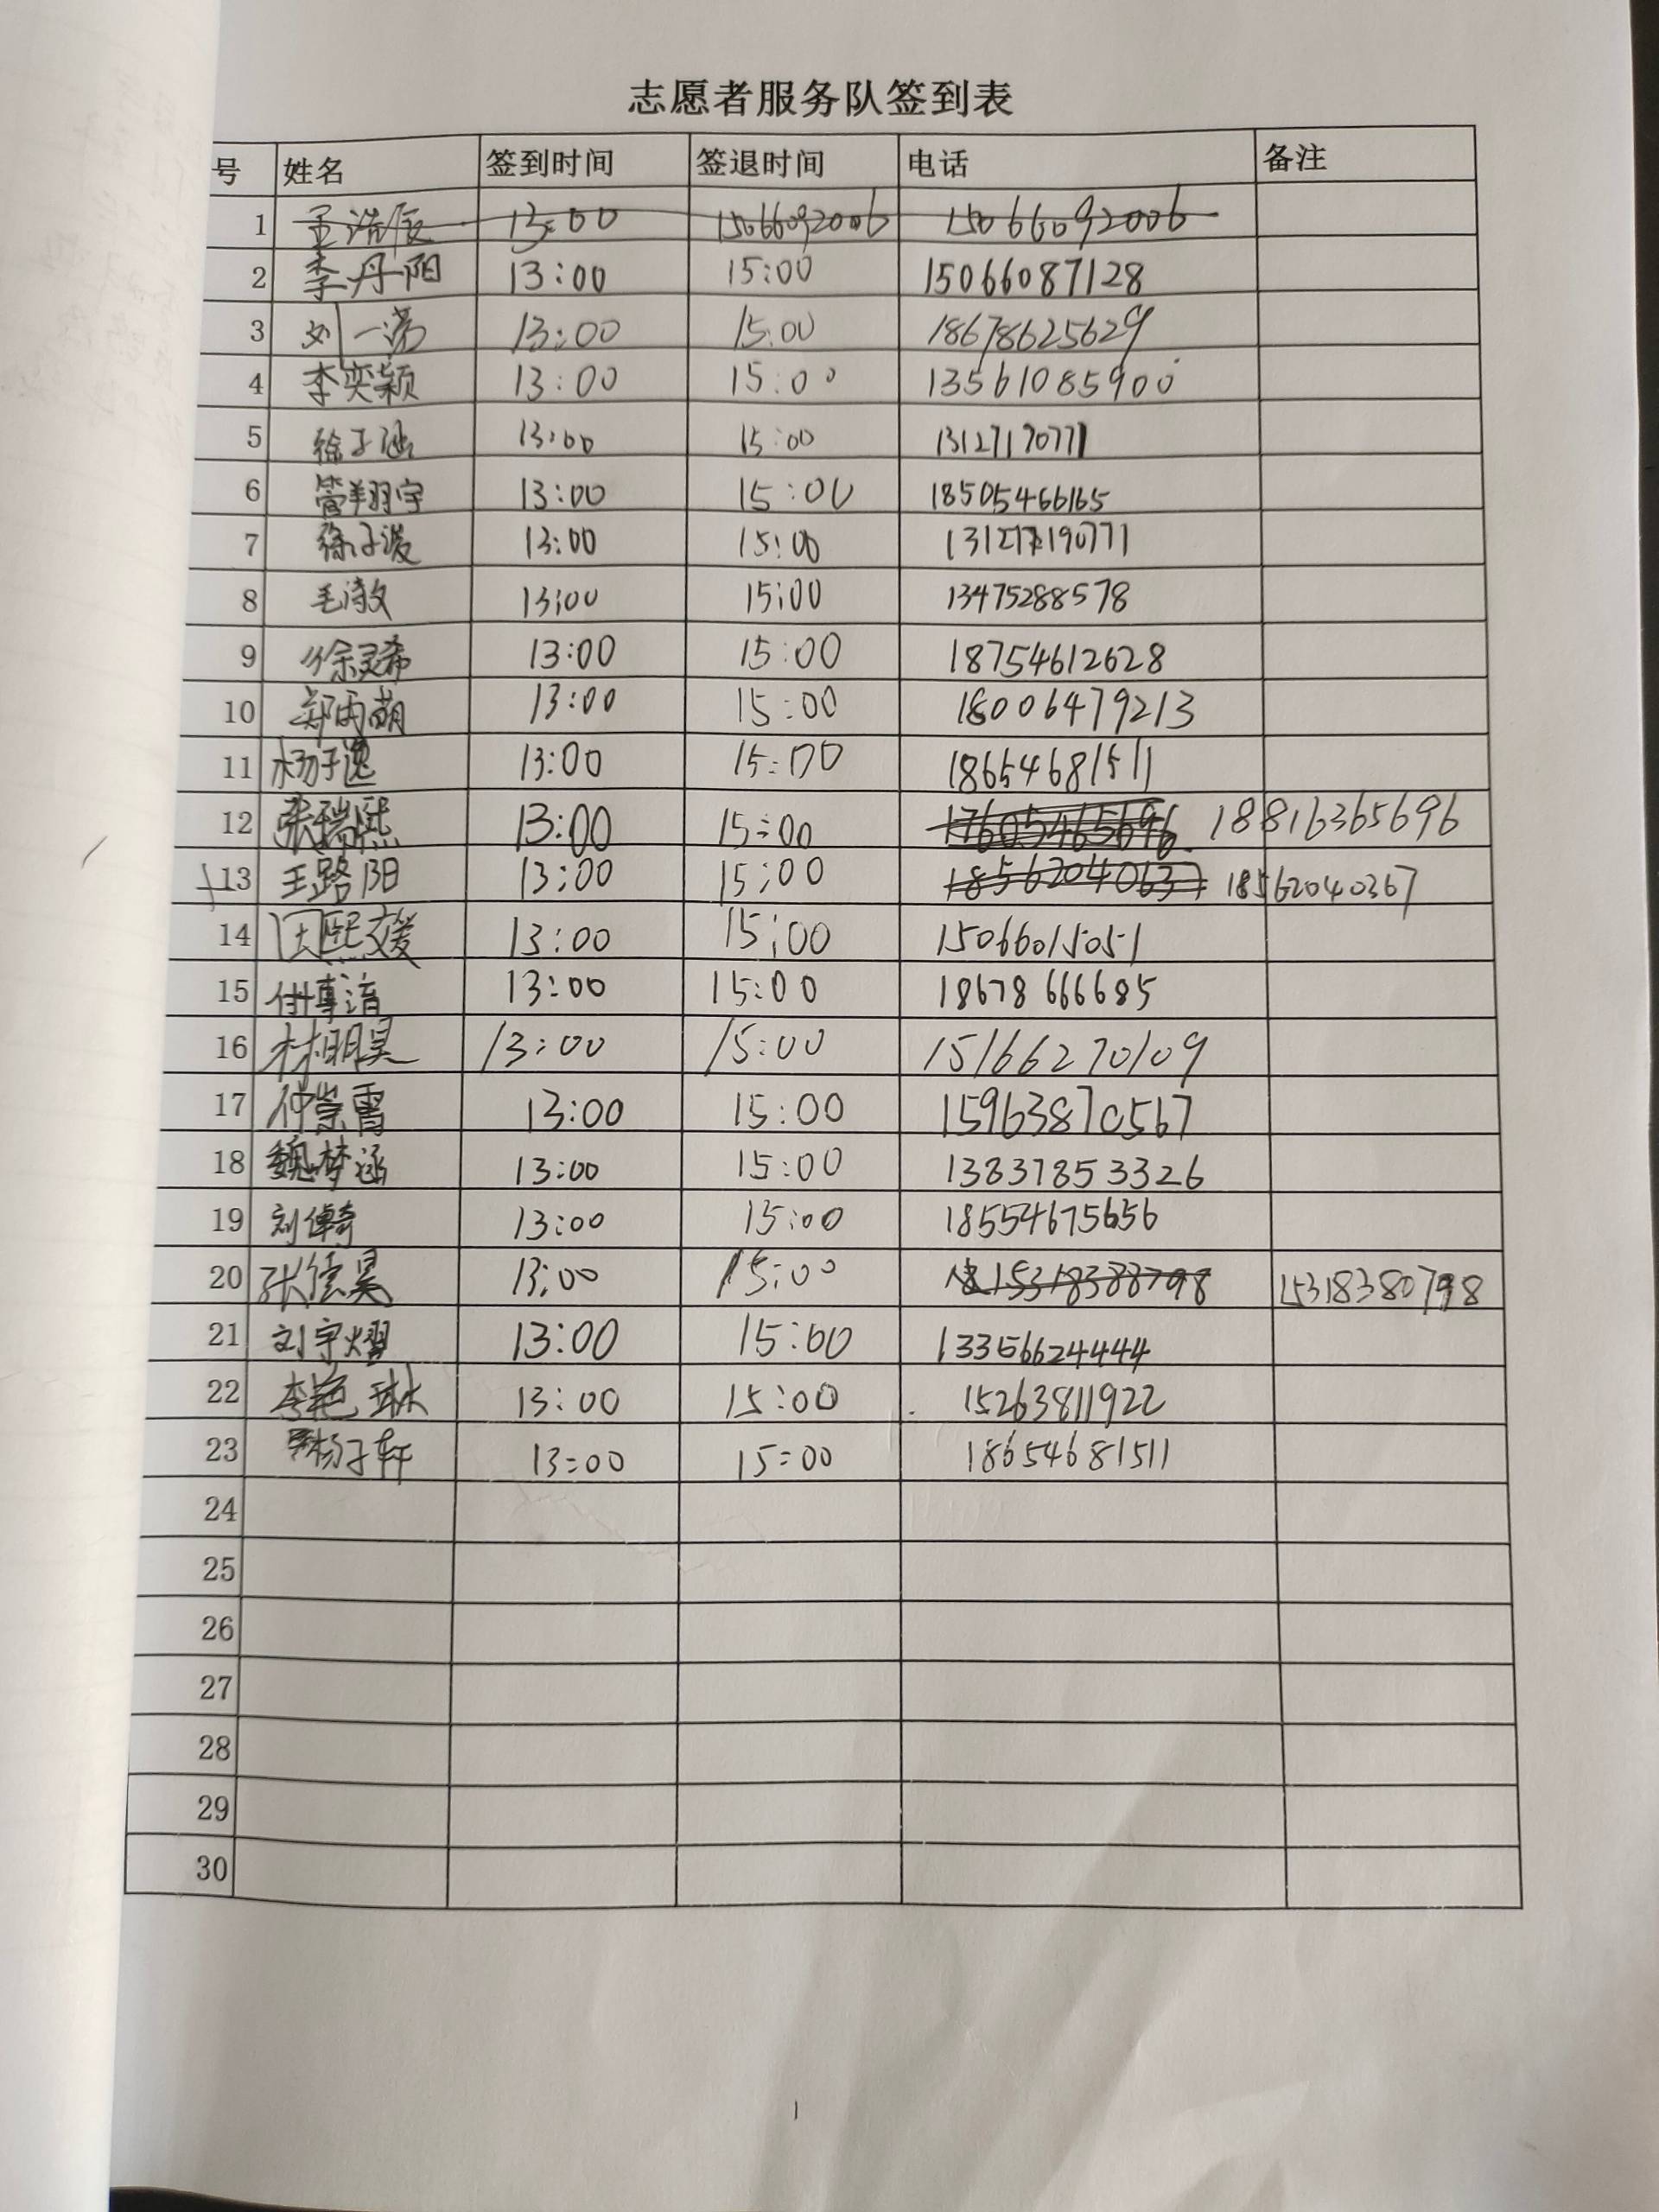 志愿者服务队签到表
号 姓名 签到时间 签退时间 电话 备注
1 王浩辰 13:00 15066092006 15066092006
2 李丹阳 13:00 15:00 15066087128
3 刘一诺 13:00 15:00 18678625629
4 李奕颖 13:00 15:00 13561085900
5 徐子涵 13:00 15:00 13127170771
6 管翔宇 13:00 15:00 18505466165
7 徐子淩 13:00 15:00
8 毛漖文 13:00 15:00 13475288578
9 徐灵希 13:00 15:00 18754612628
10 郑雨萌 13:00 15:00 18006479213
11 杨子逸 13:00 15:00 18654681511
12 张瑞熙 13:00 15:00 17605465696 18816365696
13 王路阳 13:00 15:00 18562040637 18562040367
14 田熙媛 13:00 15:00 15066015051
15 付博涵 13:00 15:00 18678666685
16 林明昊 13:00 15:00 15166270109
17 仲崇霄 13:00 15:00 15963870567
18 魏梦涵 13:00 15:00 13837853326
19 刘倬睿 13:00 15:00 18554675656
20 张信昊 13:00 15:00 15318380798
21 刘宇熠 13:00 15:00 13356624444
22 李艳琳 13:00 15:00 15263811922
23 杨子轩 13:00 15:00 18654681511
24
25
26
27
28
29
30
1